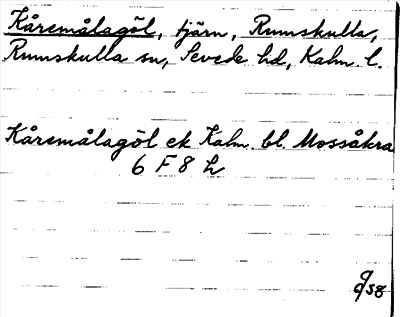 Kåremålagöl, tjärn, Rumskulla,
Rumskulla sn, Sevede hd, Kalm. l.
Kåremålagöl ek Kalm. bl. Mossåkra
6 F 8 h